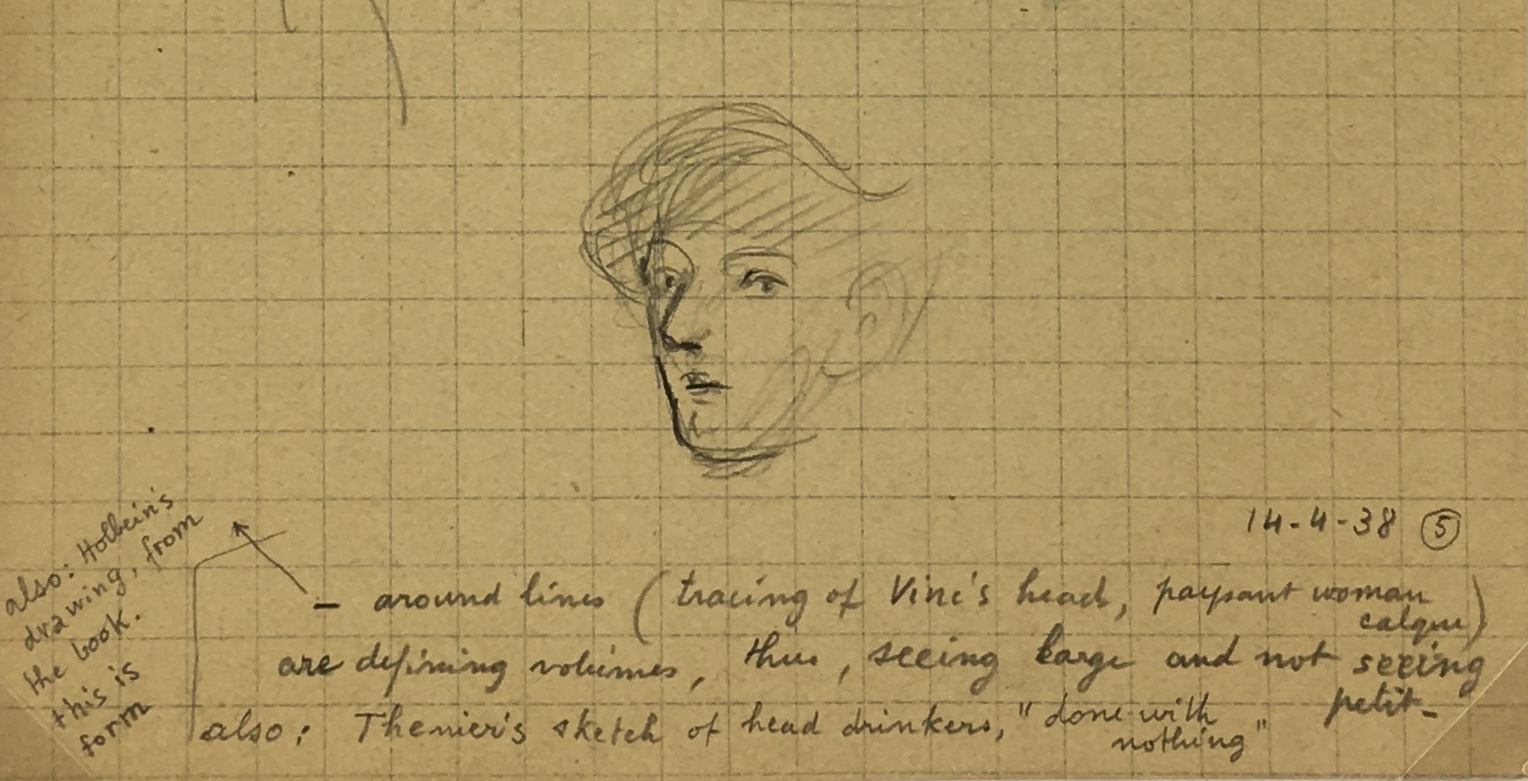 14-4-38 ⑤
– around lines (tracing of Vinci's head, paysant woman
calque)
are defining volumes, thus, seeing large and not seeing
petit-
also: Thenier's sketch of head drinkers, "done with
nothing"
also: Holbein's
drawing, from
the book.
this is
form